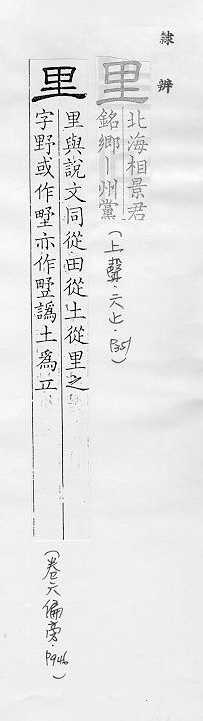 隸辨
里
北海相景君
銘鄉丨州黨
(上聲·六止·
里
里與說文同從田從土從里之
字野或作墅亦作 譌土為立
(卷六偏旁·P946)